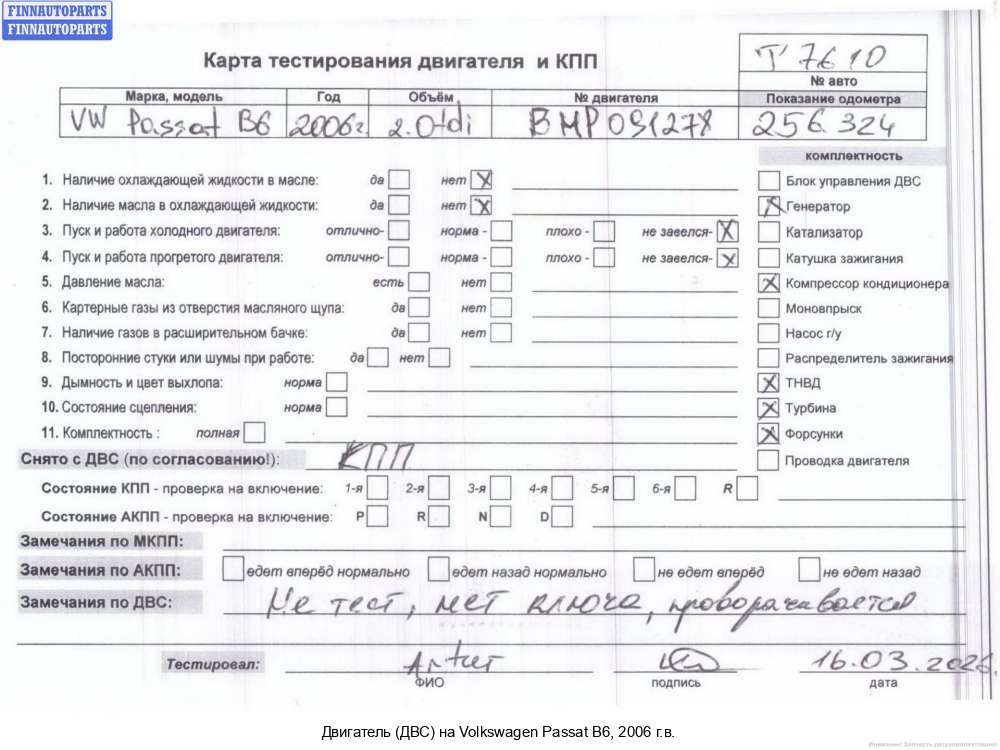 FINNAUTOPARTS
FINNAUTOPARTS
Карта тестирования двигателя и КПП
T 7610
№ авто
Марка, модель Год Объём № двигателя Показание одометра
VW Passat B6 2006г. 2.0tdi BMP091278 256 324
комплектность
1. Наличие охлаждающей жидкости в масле: да нет X Блок управления ДВС
2. Наличие масла в охлаждающей жидкости: да нет X X Генератор
3. Пуск и работа холодного двигателя: отлично- норма - плохо - не завелся- X Катализатор
4. Пуск и работа прогретого двигателя: отлично- норма - плохо - не завелся- X Катушка зажигания
5. Давление масла: есть нет X Компрессор кондиционера
6. Картерные газы из отверстия масляного щупа: да нет Моновпрыск
7. Наличие газов в расширительном бачке: да нет Насос г/у
8. Посторонние стуки или шумы при работе: да нет Распределитель зажигания
9. Дымность и цвет выхлопа: норма X ТНВД
10. Состояние сцепления: норма X Турбина
11. Комплектность : полная X Форсунки
Снято с ДВС (по согласованию!): КПП Проводка двигателя
Состояние КПП - проверка на включение: 1-я 2-я 3-я 4-я 5-я 6-я R
Состояние АКПП - проверка на включение: P R N D
Замечания по МКПП:
Замечания по АКПП: едет вперёд нормально едет назад нормально не едет вперёд не едет назад
Замечания по ДВС: Не тест, нет ключа, проворачивается
Тестировал: Artur 16.03.2026.
ФИО подпись дата
Двигатель (ДВС) на Volkswagen Passat B6, 2006 г.в.
Внимание! Запчасть разукомплектована!